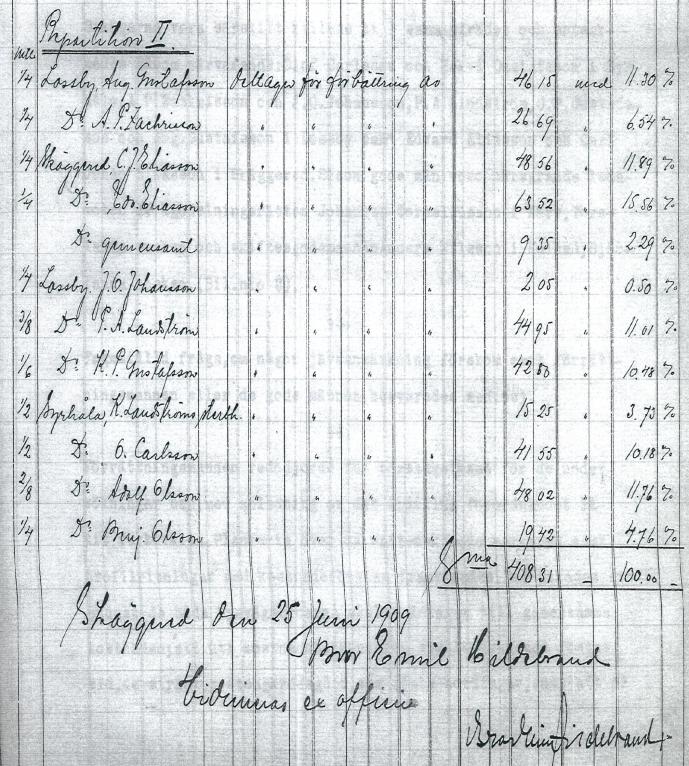 Repartition II.
Mtl
1/4 Lossby Aug. Gustafsson Deltager för förbättring av 46 15 med 11.30 %
1/4 Do A. P. Zachrisson " " " " 26 69 " 6.54 %
1/4 Skäggerud, C. J. Eliasson " " " " 48 56 " 11.89 %
1/4 Do Edv. Eliasson " " " " 63 52 " 15.56 %
Do gemensamt " " " " 9 35 " 2.29 %
1/4 Lossby J. O. Johansson " " " " 2 05 " 0.50 %
3/8 Do P. A. Landström " " " " 44 95 " 11.01 %
1/6 Do K. P. Gustafsson " " " " 42 80 " 10.48 %
1/2 K. Landströms Sterbh. " " " " 15 25 " 3.73 %
1/2 Do O. Carlsson " " " " 41 55 " 10.18 %
2/8 Do Adolf Olsson " " " " 48 02 " 11.76 %
1/4 Do Benj. Olsson " " " " 19 42 " 4.76 %
Sma 408 31 – 100.00 –
den 25 Juni 1909
Emil Hildebrand
Vidimeras ex officio
Hildebrand